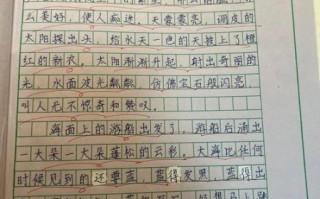 么美好，使人痴迷，天蒙蒙亮，调皮的
太阳探出头，给水天一色的天被上了橙
红的新衣。太阳渐渐升起，射出奇丽的
光，水面波光粼粼，仿佛宝石般闪亮，
叫人无不惊奇和赞叹。
海面上的游船出发了，游船后涌出
一大朵一大朵蓬松的云彩。大海比任何
时候见到的还要蓝，蓝得发黑，蓝得出